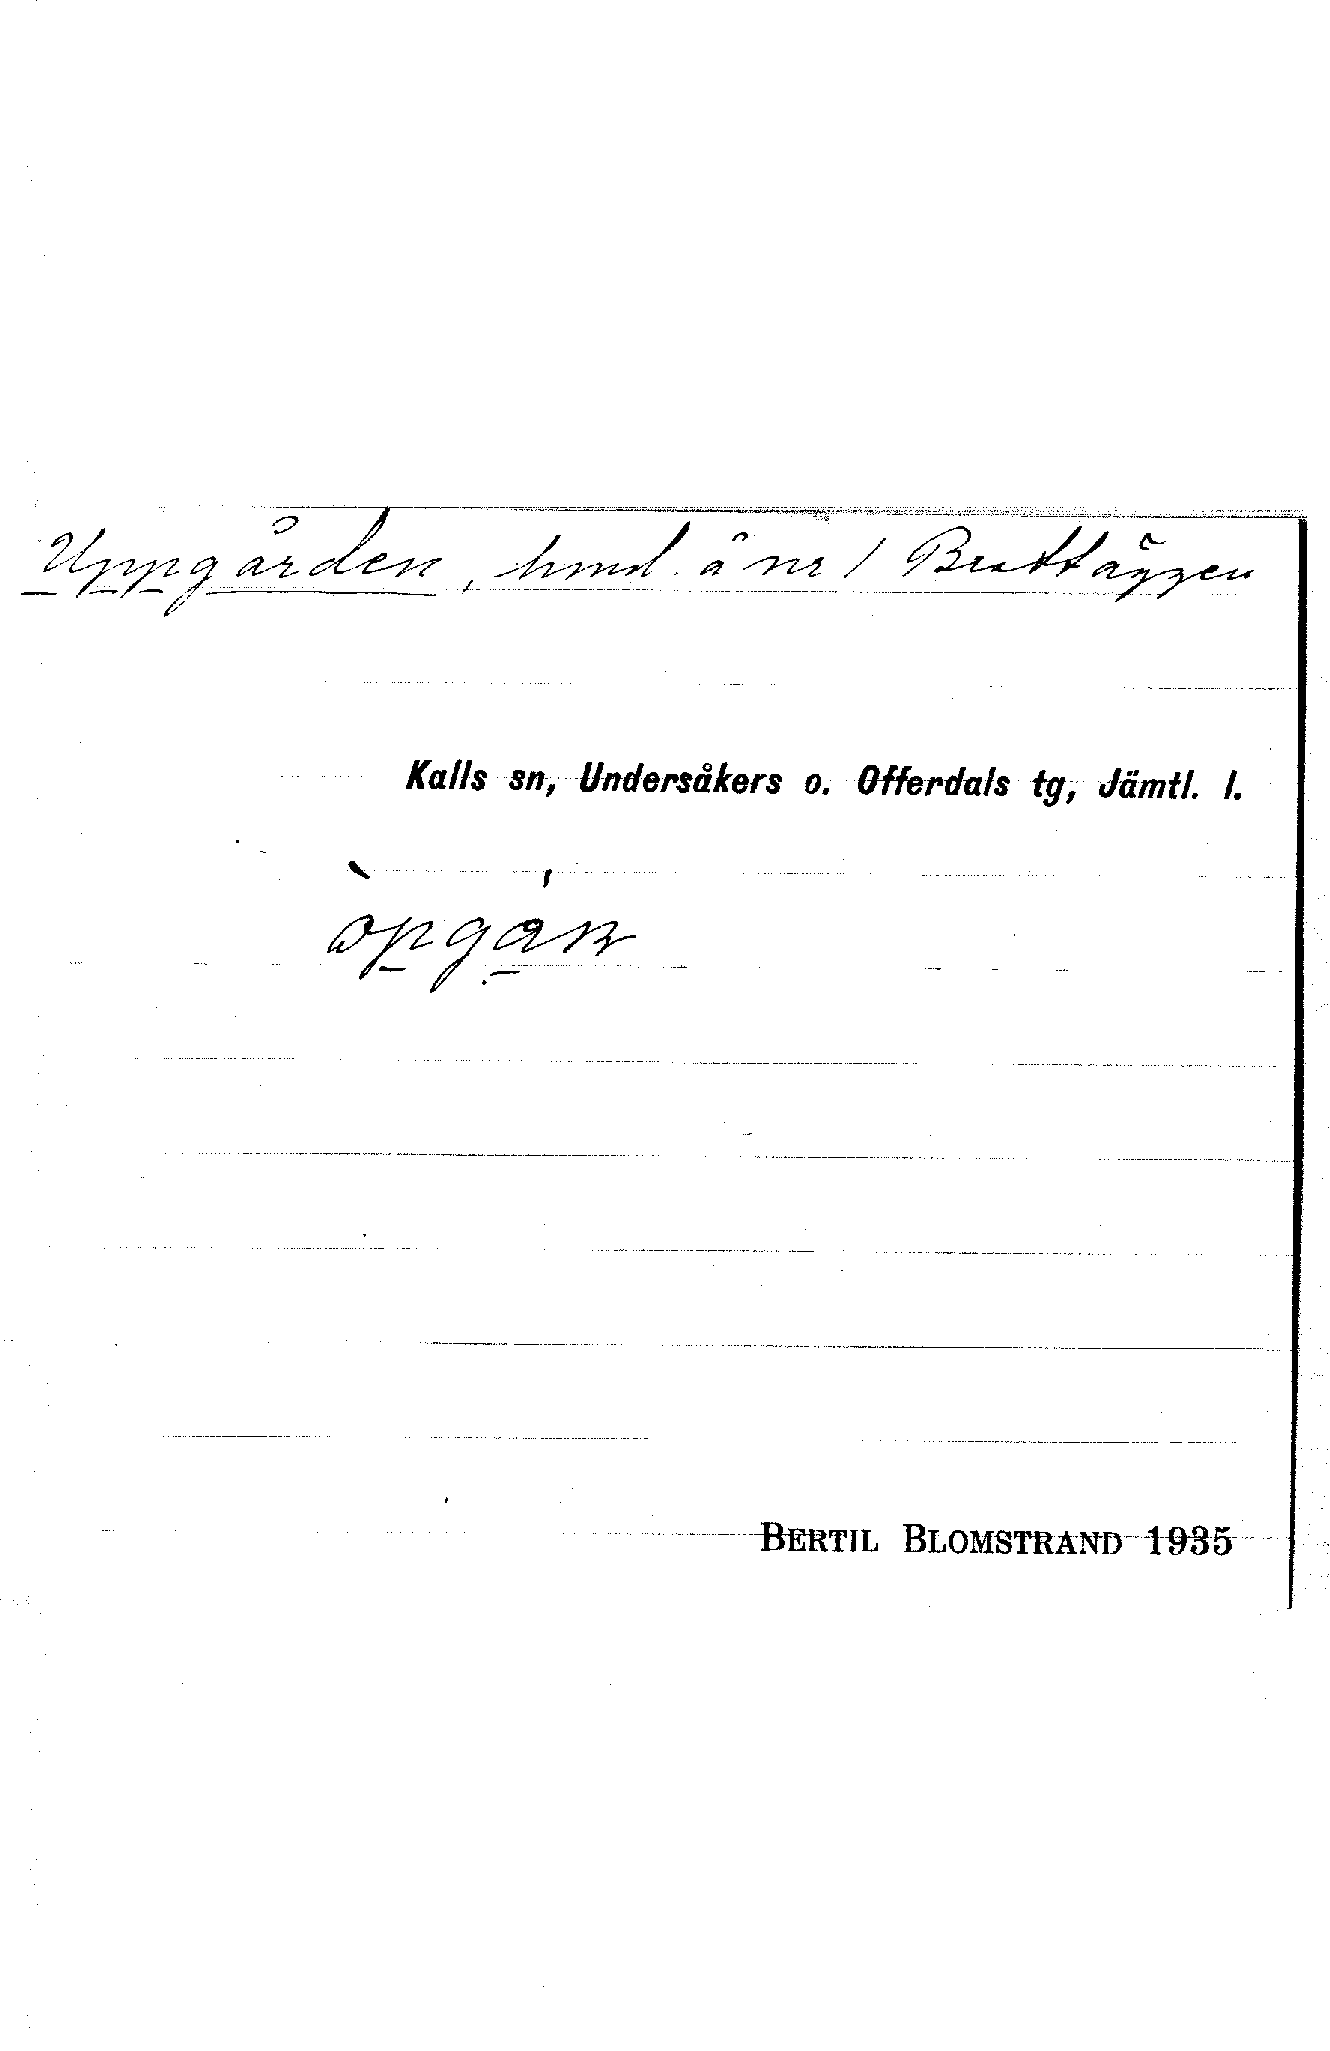 Uppgården, hmd. å nr 1 Brattäggen
Kalls sn, Undersåkers o. Offerdals tg, Jämtl. l.
BERTIL BLOMSTRAND 1935